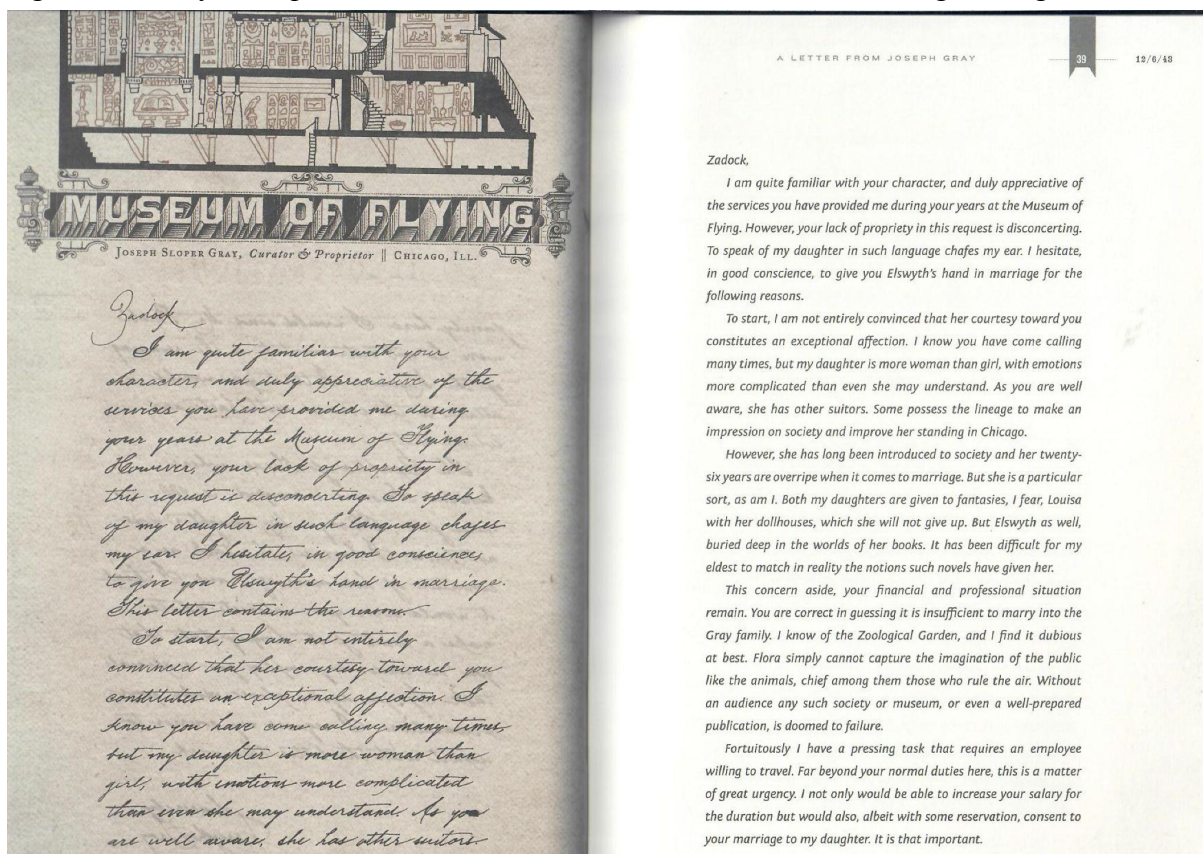 MUSEUM OF FLYING
JOSEPH SLOPER GRAY, Curator & Proprietor || CHICAGO, ILL.
Zadock,
I am quite familiar with your
character, and duly appreciative of the
services you have provided me during
your years at the Museum of Flying.
However, your lack of propriety in
this request is disconcerting. To speak
of my daughter in such language chafes
my ear. I hesitate, in good conscience,
to give you Elswyth's hand in marriage.
This letter contains the reasons.
To start, I am not entirely
convinced that her courtesy toward you
constitutes an exceptional affection. I
know you have come calling many times,
but my daughter is more woman than
girl, with emotions more complicated
than even she may understand. As you
are well aware, she has other suitors.
A LETTER FROM JOSEPH GRAY
39
12/6/43
Zadock,
I am quite familiar with your character, and duly appreciative of
the services you have provided me during your years at the Museum of
Flying. However, your lack of propriety in this request is disconcerting.
To speak of my daughter in such language chafes my ear. I hesitate,
in good conscience, to give you Elswyth's hand in marriage for the
following reasons.
To start, I am not entirely convinced that her courtesy toward you
constitutes an exceptional affection. I know you have come calling
many times, but my daughter is more woman than girl, with emotions
more complicated than even she may understand. As you are well
aware, she has other suitors. Some possess the lineage to make an
impression on society and improve her standing in Chicago.
However, she has long been introduced to society and her twenty-
six years are overripe when it comes to marriage. But she is a particular
sort, as am I. Both my daughters are given to fantasies, I fear, Louisa
with her dollhouses, which she will not give up. But Elswyth as well,
buried deep in the worlds of her books. It has been difficult for my
eldest to match in reality the notions such novels have given her.
This concern aside, your financial and professional situation
remain. You are correct in guessing it is insufficient to marry into the
Gray family. I know of the Zoological Garden, and I find it dubious
at best. Flora simply cannot capture the imagination of the public
like the animals, chief among them those who rule the air. Without
an audience any such society or museum, or even a well-prepared
publication, is doomed to failure.
Fortuitously I have a pressing task that requires an employee
willing to travel. Far beyond your normal duties here, this is a matter
of great urgency. I not only would be able to increase your salary for
the duration but would also, albeit with some reservation, consent to
your marriage to my daughter. It is that important.